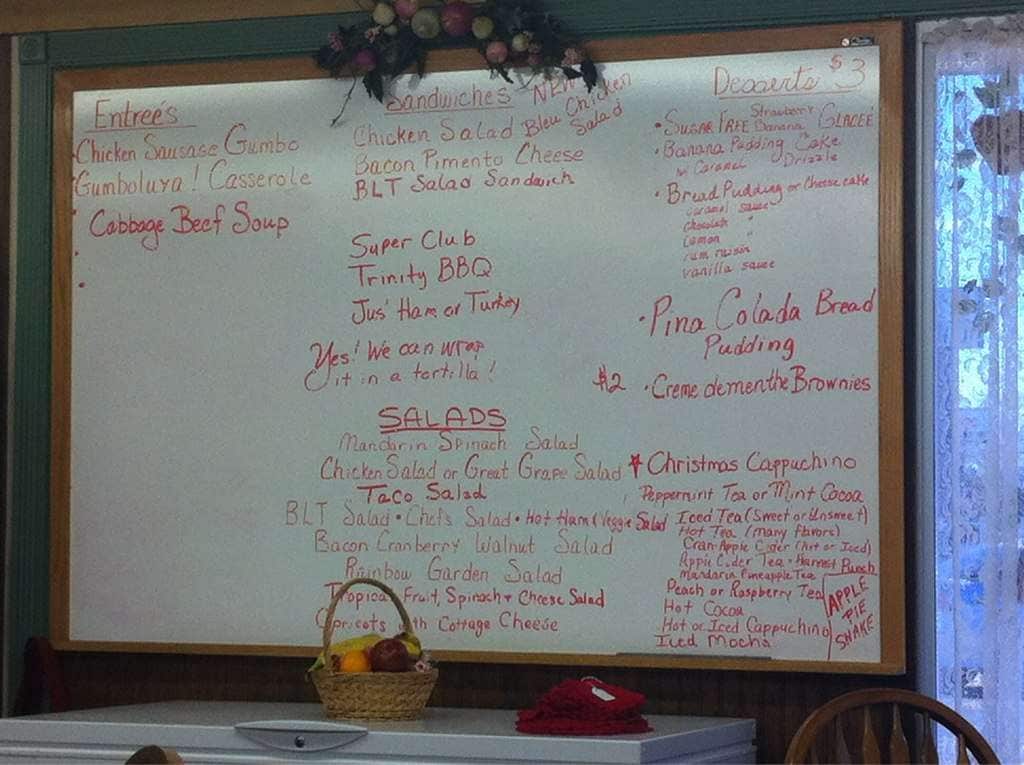 Entreé's
Chicken Sausage Gumbo
Gumboluya! Casserole
Cabbage Beef Soup
Sandwiches
NEW
Bleu Chicken
Salad
Chicken Salad
Bacon Pimento Cheese
BLT Salad Sandwich
Super Club
Trinity BBQ
Jus' Ham or Turkey
Yes! We can wrap
it in a tortilla!
SALADS
Mandarin Spinach Salad
Chicken Salad or Great Grape Salad
Taco Salad
BLT Salad • Chefs Salad • Hot Ham/Veggie Salad
Bacon Cranberry Walnut Salad
Rainbow Garden Salad
Tropical Fruit, Spinach + Cheese Salad
Apricots with Cottage Cheese
Desserts $3
• SUGAR FREE Strawberry Banana GLACEÉ
• Banana Pudding Cake
w/ Caramel Drizzle
• Bread Pudding or Cheese cake
caramel sauce
chocolate "
Lemon "
rum raisin
vanilla sauce
• Pina Colada Bread
Pudding
$2 • Creme dementhe Brownies
Christmas Cappuchino
Peppermint Tea or Mint Cocoa
Iced Tea (Sweet or Unsweet)
Hot Tea (many flavors)
Cran-Apple Cider (Hot or Iced)
Apple Cider Tea • Harvest Punch
Mandarin Pineapple Tea
Peach or Raspberry Tea
Hot Cocoa
Hot or Iced Cappuchino
Iced Mocha
APPLE
PIE
SHAKE